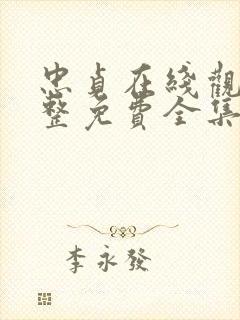 忠貞在綫觀
整免費全集
李永發